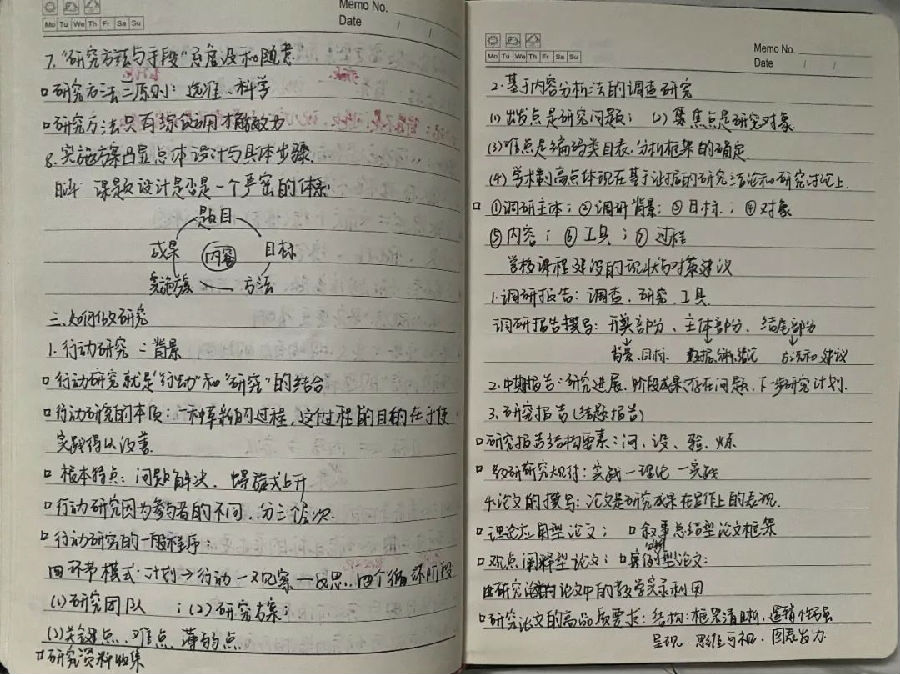 Memo No.
Mo Tu We Th Fr Sa Su
Date / /
7."研究方法与手段"忌虚设和随意
□研究方法三原则：选准、科学
□研究方法只有综合运用才能被效力
8.实施方案凸显总体设计与具体步骤.
课题设计是否是一个严密的体系
题目
成果 内容 目标
实施方案 方法
三、如何做研究
1.行动研究：背景
□行动研究就是"行动"和"研究"的结合
□行动研究的本质：一种革新的过程，这个过程的目的在于使
实践得以改善.
□根本特点：问题解决、螺旋式上升
□行动研究因为参与者的不同，分三个层次.
□行动研究的一般程序：
四环节模式：计划→行动—观察—反思，四个循环阶段
(1)研究团队 ；(2)研究方案；
(3)关键点、难点、薄弱点
□研究资料收集
Memo No.
Mn Tu We Th Fr Sa Su
Date / /
2.基于内容分析法的调查研究
(1)出发点是研究问题； (2)聚焦点是研究对象
(3)难点是编码类目表、分析框架的确定
(4)学术制高点体现在基于证据的研究结论和研究讨论上.
□①调研主体；②调研背景；③目标；④对象
⑤内容；⑥工具；⑦过程
学校课程建设的现状与对策建议
1.调研报告：调查、研究、工具
调研报告撰写：开头部分、主体部分、结尾部分
背景、目标 数据、结论 与建议
2.中期报告：研究进展、阶段成果、存在问题、下步研究计划.
3.研究报告(结题报告)
□研究报告结构要素：问、设、验、炼
□教研研究规律：实践—理论—实践
4.论文的撰写：论文是研究成果在写作上的表现.
□理论应用型论文； □叙事总结型论文框架
□观点阐释型论文；□案例型论文：
□研究论文中的教学实录利用
□研究论文的高品质要求：结构：框架清晰、逻辑
呈现 思维